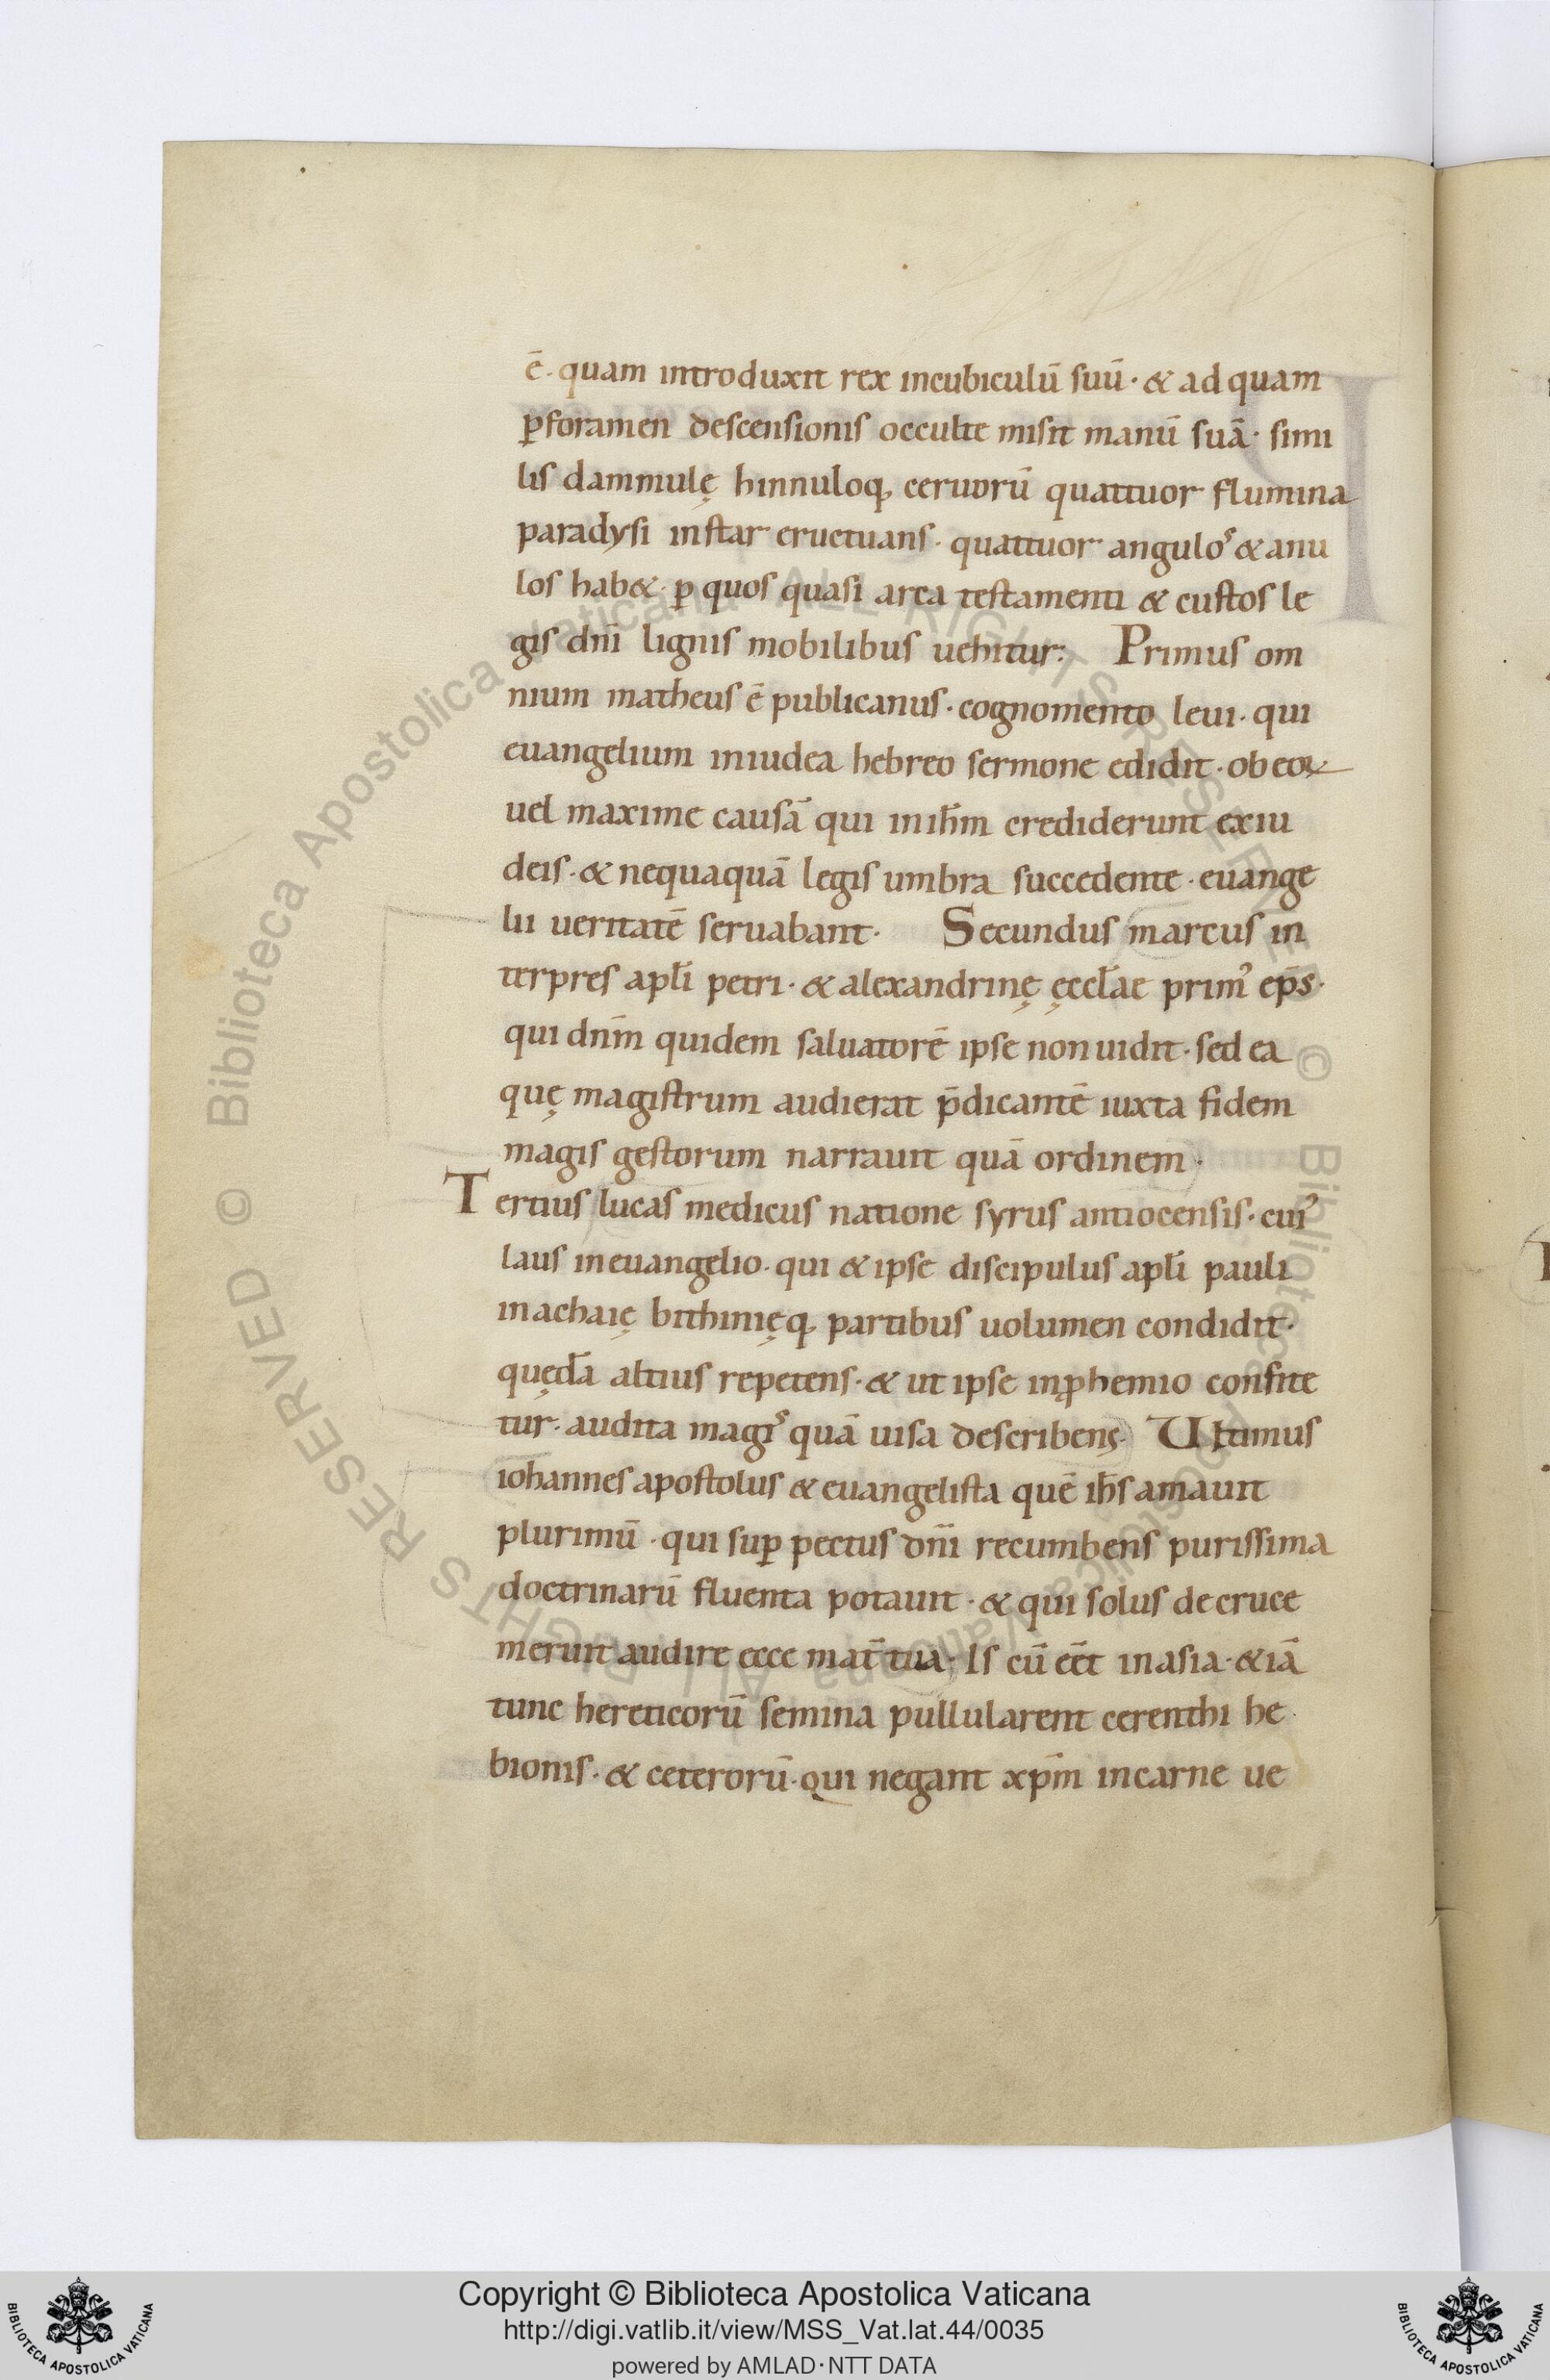 ē· quam introduxit rex incubiculū suū· & ad quam
ꝑforamen descensionis occulte misit manū suā· simi
lis dammulę hinnuloq; ceruorū quattuor flumina
paradysi instar eructuans· quattuor anguloˢ & anu
los hab&· ꝑ quos quasi arca testamenti & custos le
gis dn̄i lignis mobilibus uehitur: Primus om
nium matheus ē publicanus· cognomento leui· qui
euangelium iniudea hebreo sermone edidit· ob eoꝝ
uel maxime causā qui inih̄m crediderunt exiu
deis· & nequaquā legis umbra succedente· euange
lii ueritatē seruabant· Secundus marcus in
terpres apl̄i petri· & alexandrinę ęccl̄ae primꝰ ep̄s·
qui dn̄m quidem saluatorē ipse non uidit· sed ea
quę magistrum audierat p̄dicantē iuxta fidem
magis gestorum narrauit quā ordinem·
Tertius lucas medicus natione syrus antiocensis· cuiꝰ
laus ineuangelio· qui & ipse discipulus apl̄i pauli
inachaię bithinięq; partibus uolumen condidit·
quędā altius repetens· & ut ipse inꝓhemio confite
tur· audita magiˢ quā uisa describens· Ultimus
iohannes apostolus & euangelista quē ih̄s amauit
plurimū· qui suꝑ pectus dn̄i recumbens purissima
doctrinarū fluenta potauit· & qui solus decruce
meruit audire ecce mat̄ tua· Is cū eēt inasia· & iā
tunc hereticorū semina pullularent cerenthi he
bionis· & ceterorū· qui negant xp̄m incarne ue
© Biblioteca Apostolica Vaticana ALL RIGHTS RESERVED © Biblioteca Apostolica Vaticana ALL RIGHTS RESERVED
Copyright © Biblioteca Apostolica Vaticana
http://digi.vatlib.it/view/MSS_Vat.lat.44/0035
powered by AMLAD·NTT DATA
BIBLIOTECA APOSTOLICA VATICANA
BIBLIOTECA APOSTOLICA VATICANA